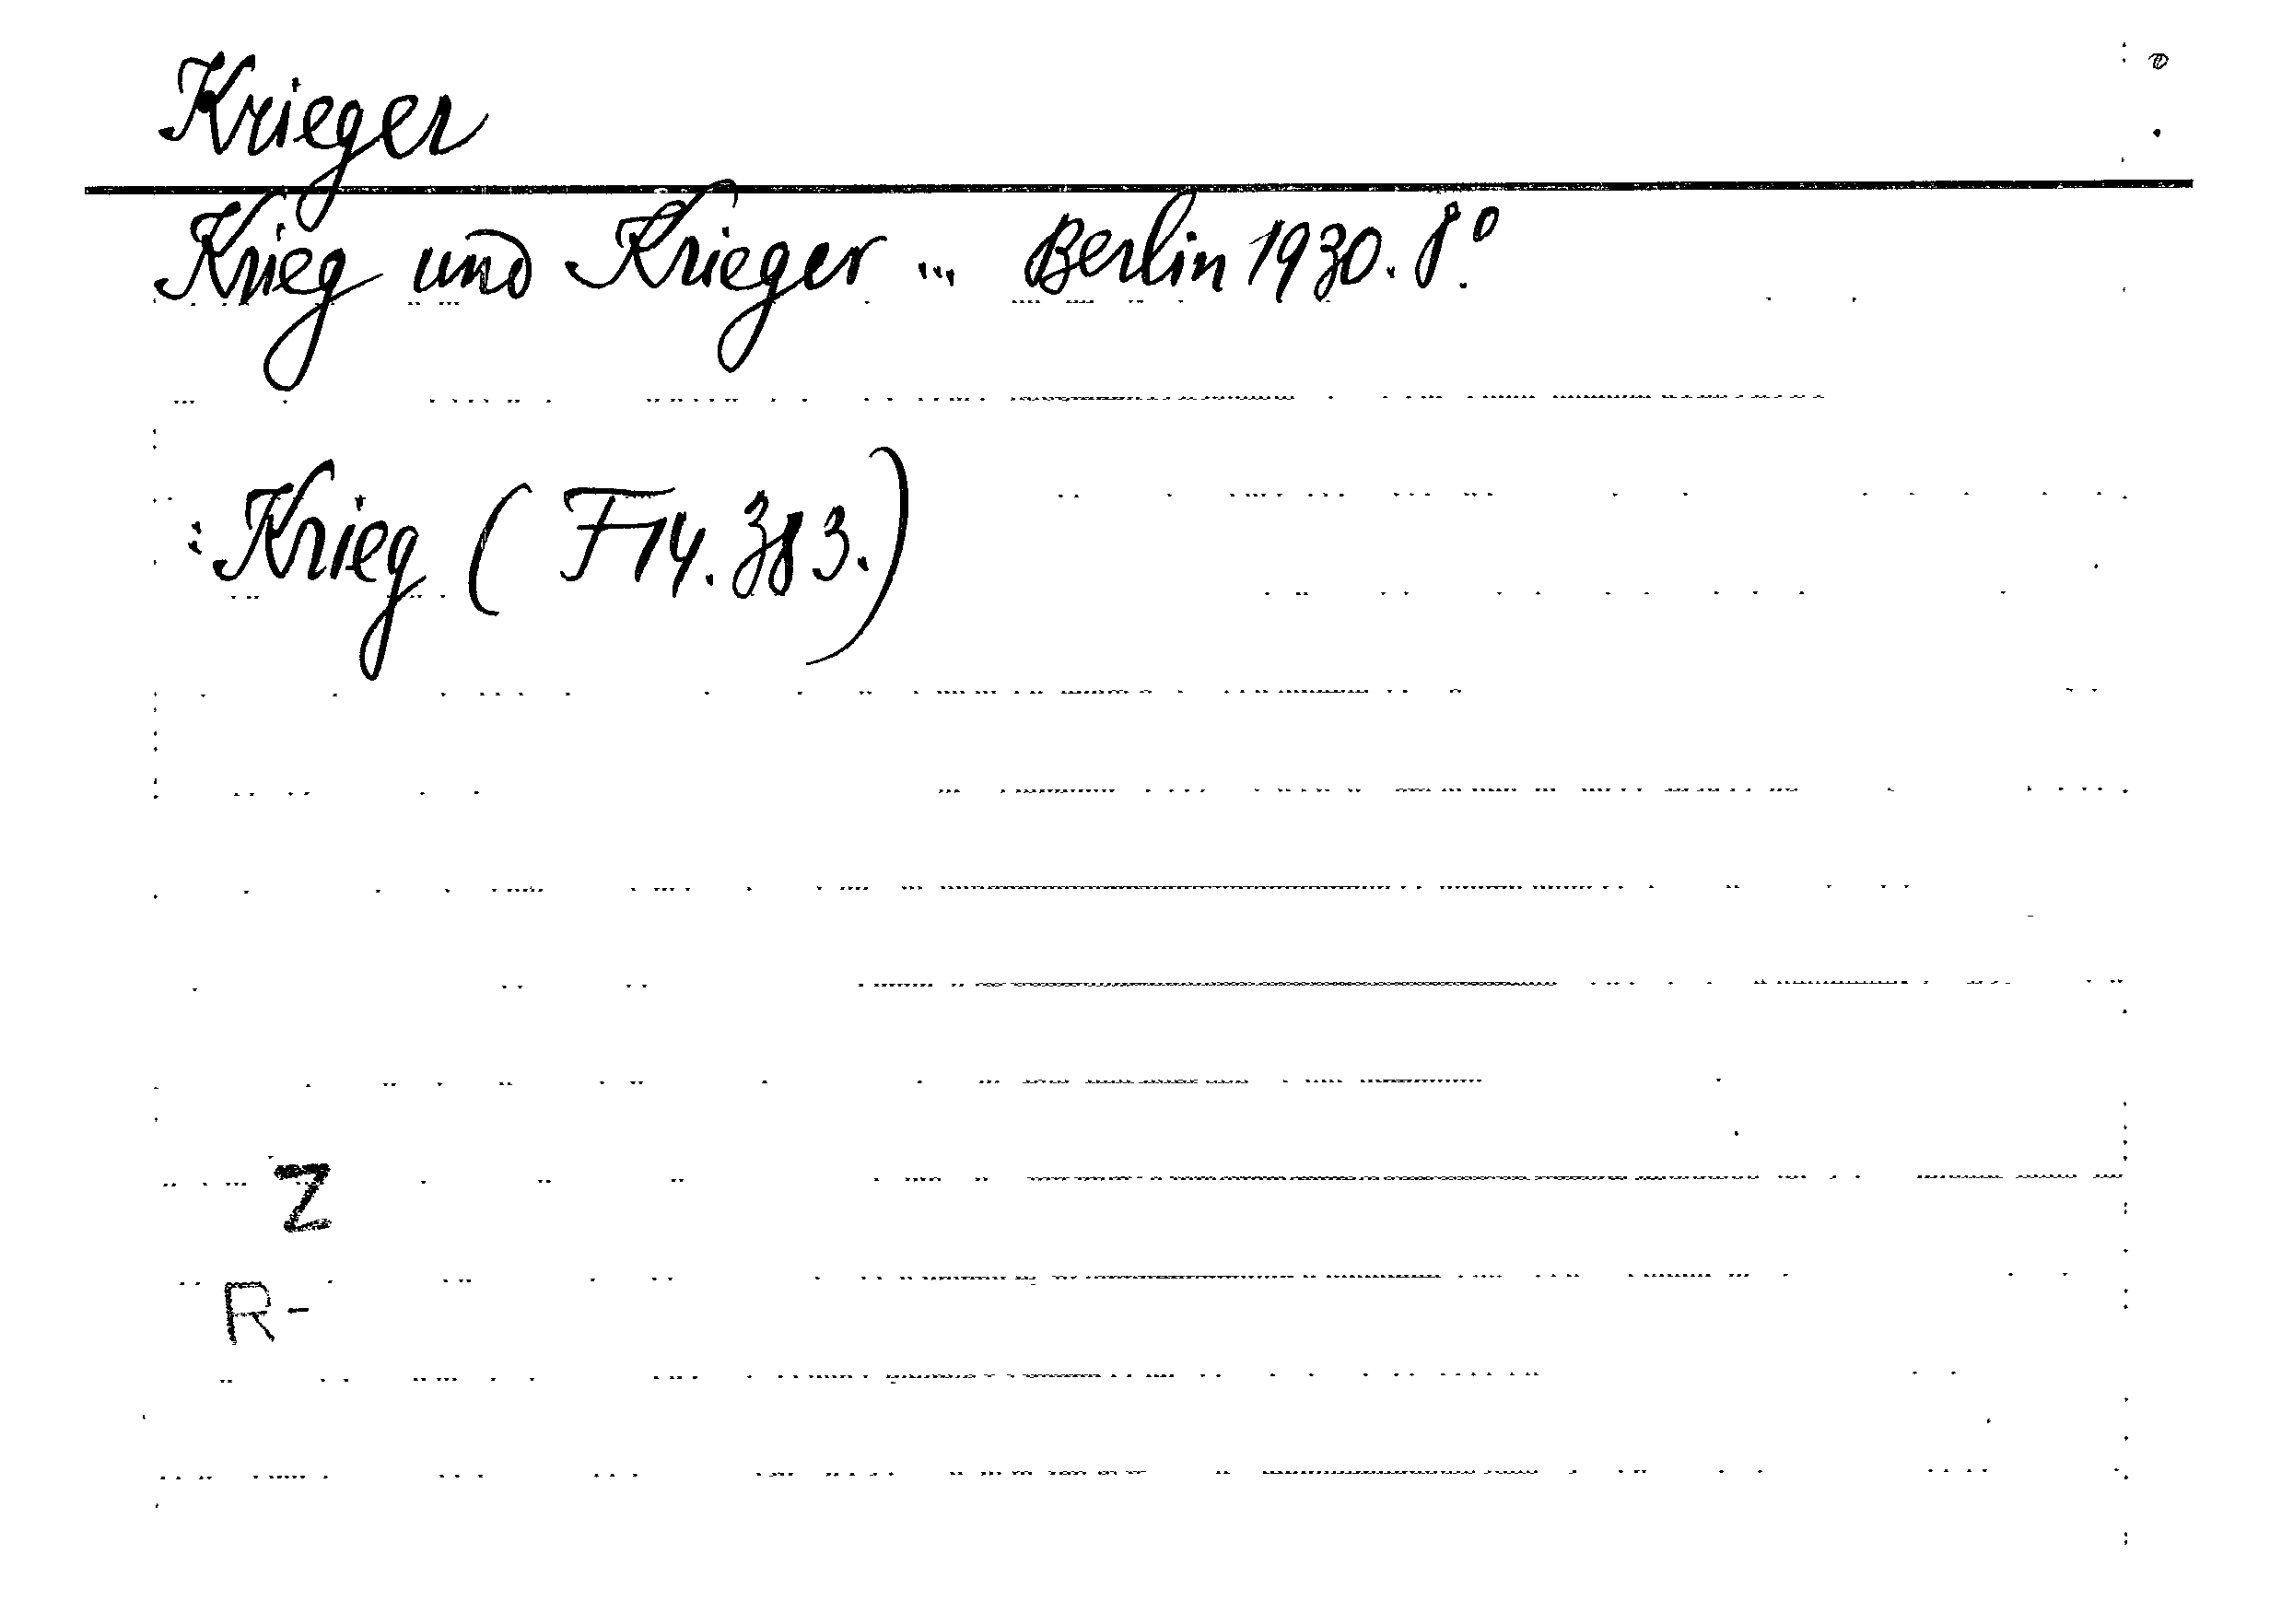 Krieger
Krieg und Krieger ... Berlin 1930. 8°.
: Krieg ( F14.383.)
Z
R-